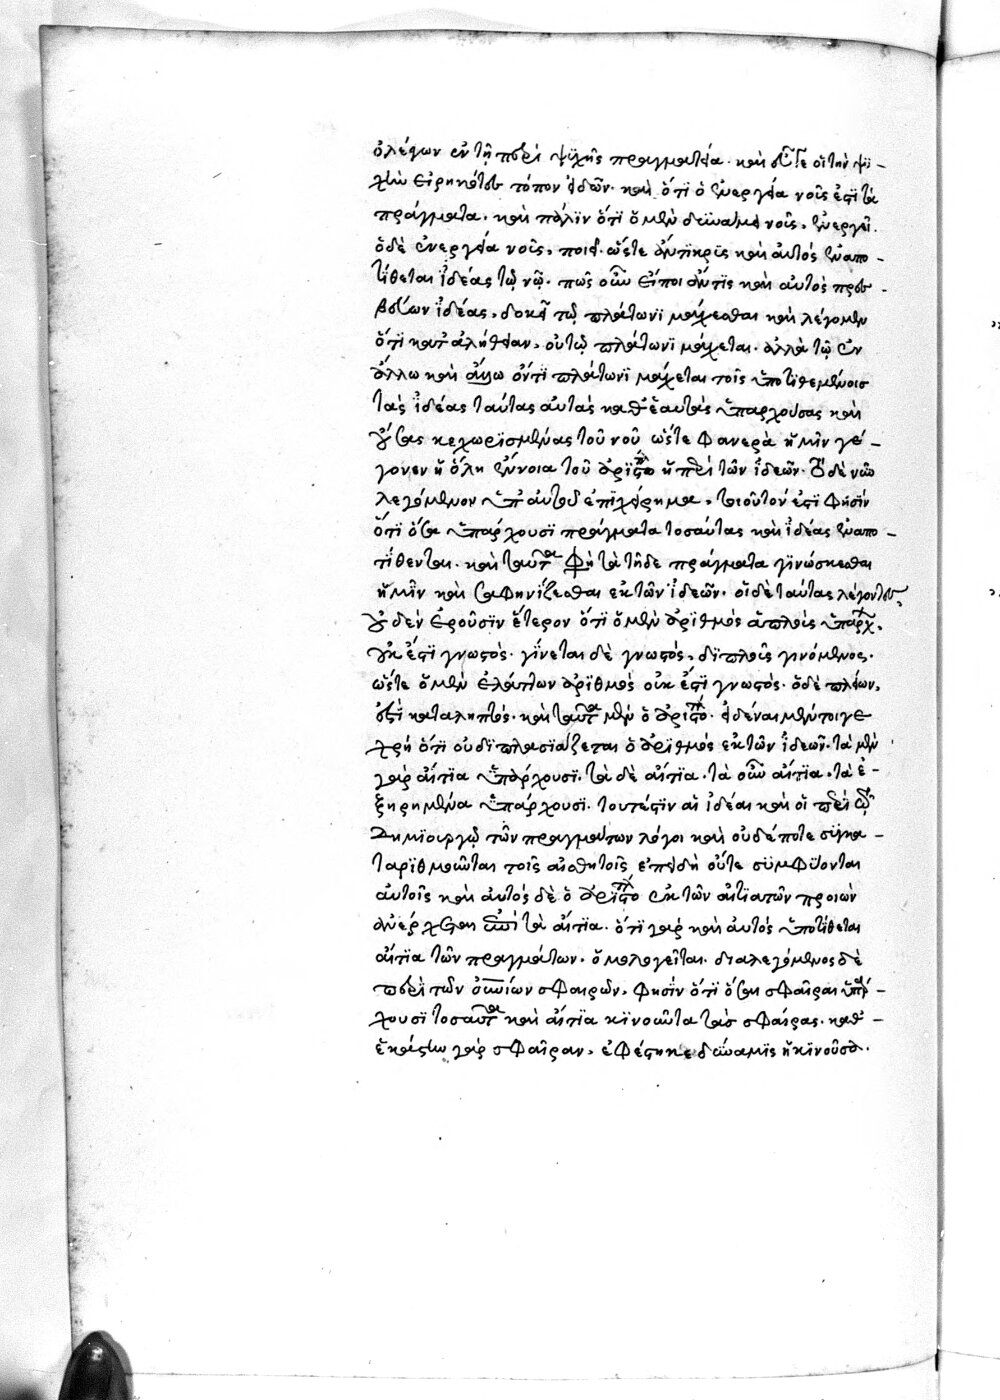 ὁ λέγων ἐν τῆ περὶ ψυχῆς πραγματεία. καὶ οὗτε οἱ τὴν ψυ-
χὴν εἰρηκότες τόπον εἰδῶν. καὶ ὅτι ὁ ἐνεργεία νοῦς ἐστὶ τὰ
πράγματα. καὶ πάλιν ὅτι ὁ μὲν δυνάμει νοῦς, ἐνεργεῖ.
ὁ δὲ ἐνεργεία νοῦς, ποιεῖ. ὥστε ἄντικρυς καὶ αὐτός ἐναπο-
τίθεται ἰδέας τῷ νῷ. πῶς οὖν εἴποι ἄντις καὶ αὐτὸς πρεσ-
βεύων ἰδέας, δοκεῖ τῷ πλάτωνι μάχεσθαι καὶ λέγομεν
ὅτι κατ ἀλήθειαν, οὐ τῷ πλάτωνι μάχεται. ἀλλὰ τῷ ἐν
ἄλλω καὶ ἄλλω ὄντι πλάτωνι μάχεται τοῖς ὑποτιθεμένοις
τὰς ἰδέας ταύτας αὐτὰς καθ ἑαυτὰς ὑπαρχούσας καὶ
οὔσας κεχωρισμένας τοῦ νοῦ ὥστε φανερὰ ἡμῖν γέ-
γονεν ἡ ὅλη ἔννοια τοῦ ἀριστο ἡ περὶ τῶν ἰδεῶν. τὸ δὲ νῦν
λεγόμενον ὑπ αὐτοῦ ἐπιχείρημα, τοιοῦτον ἐστὶ φησὶν
ὅτι ὅσα ὑπάρχουσι πράγματα τοσαύτας καὶ ἰδέας ἐναπο-
τίθενται. καὶ ταῦτα φὴ τὰ τῆδε πράγματα γινώσκεσθαι
ἡμῖν καὶ σαφηνίζεσθαι ἐκ τῶν ἰδεῶν. οἱ δὲ ταύτας λέγοντες,
οὐδὲν ἐροῦσιν ἕτερον ὅτι ὁ μὲν ἀριθμὸς ἁπλοῦς ὑπάρχ,
οὐκ ἐστὶ γνωστός. γίνεται δὲ γνωστός, διπλοῦς γινόμενος.
ὥστε ὁ μὲν ἐλάττων ἀριθμὸς οὐκ ἐστὶ γνωστός. ὁ δὲ πλείων,
ἐστὶ καταληπτός. καὶ ταῦτα μὲν ὁ ἀριστο. εἰδέναι μέν τοι γε
χρὴ ὅτι οὐ διπλασιάζεται ὁ ἀριθμὸς ἐκ τῶν ἰδεῶν. τὰ μὲν
γὰρ αἴτια ὑπάρχουσι. τὰ δὲ αἴτια. τὰ οὖν αἴτια, τὰ ἐ-
ξηρημένα ὑπάρχουσι. τουτέστιν αἱ ἰδέαι καὶ οἱ περὶ τῷ
δημιουργῷ τῶν πραγμάτων λόγοι καὶ οὐδέποτε συγκα-
ταριθμοῦνται τοῖς αἰσθητοῖς ἐπειδὴ οὔτε συμφύονται
αὐτοῖς καὶ αὐτὸς δὲ ὁ ἀριστο ἐκ τῶν αἰτιατῶν προιὼν
ἀνέρχεται ἐπὶ τὰ αἴτια. ὅτι γὰρ καὶ αὐτός ὑποτίθεται
αἴτια τῶν πραγμάτων. ὁμολογεῖται. διαλεγόμενος δὲ
περὶ τῶν οὐνίων σφαιρῶν, φησὶν ὅτι ὅσαι σφαῖραι ὑπάρ-
χουσι τοσαῦτα καὶ αἴτια κινοῦντα τὰς σφαίρας. καθ -
ἑκάστην γὰρ σφαῖραν, ἐφέστηκε δύναμις ἡ κινοῦσα.